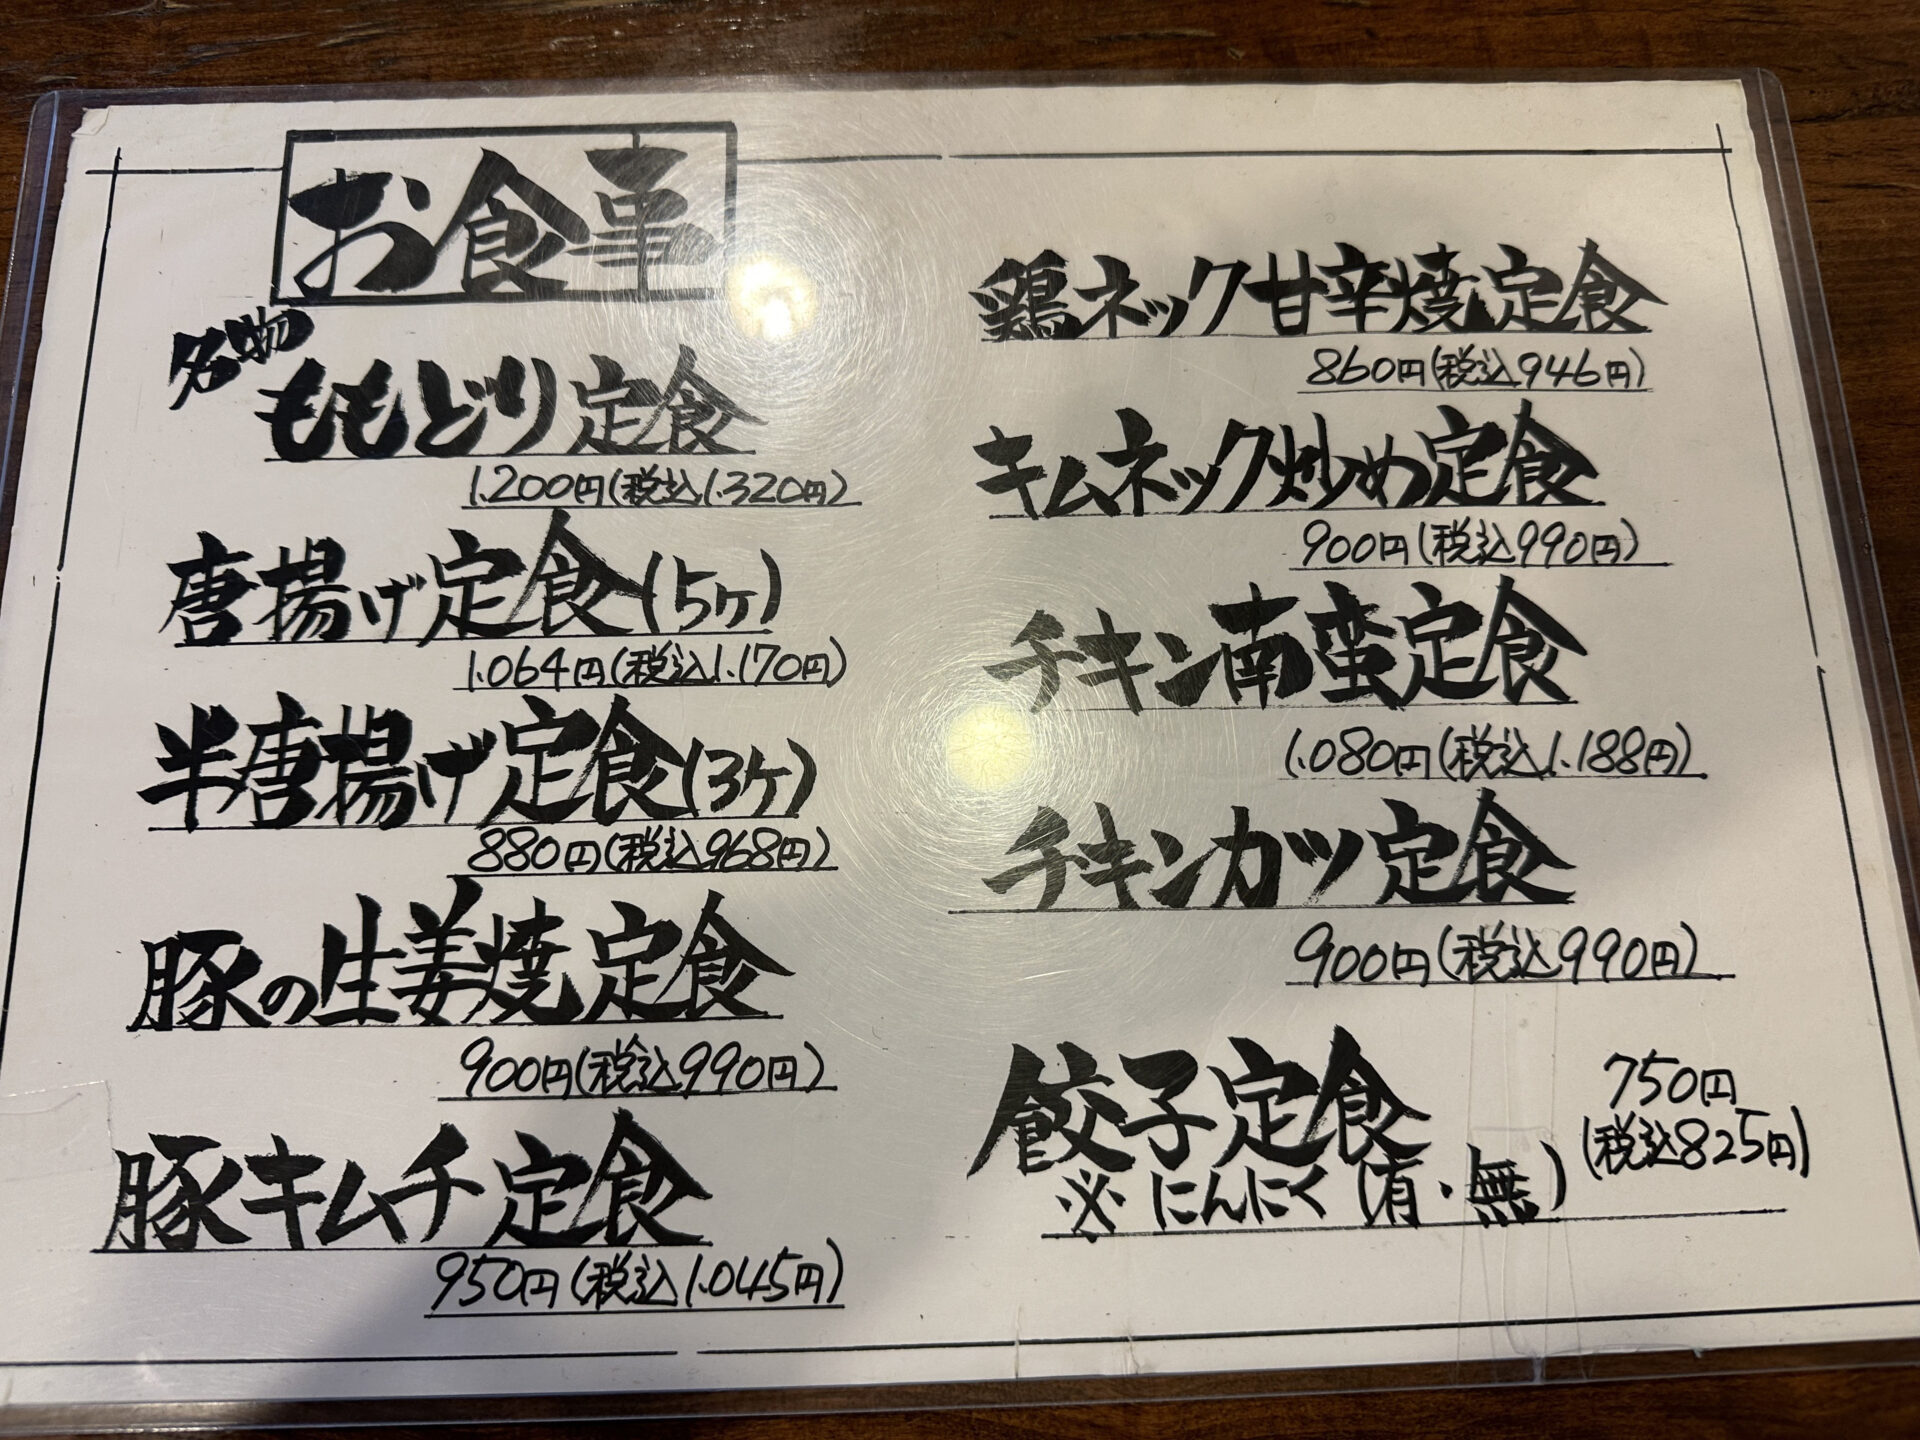 お食事
名物
ももどり定食
1.200円(税込1.320円)
唐揚げ定食(5ヶ)
1.064円(税込1.170円)
半唐揚げ定食(3ヶ)
880円(税込968円)
豚の生姜焼定食
900円(税込990円)
豚キムチ定食
950円(税込1.045円)
鶏ネック甘辛焼定食
860円(税込946円)
キムネック炒め定食
900円(税込990円)
チキン南蛮定食
1.080円(税込1.188円)
チキンカツ定食
900円(税込990円)
餃子定食
※にんにく(有・無)
750円
(税込825円)